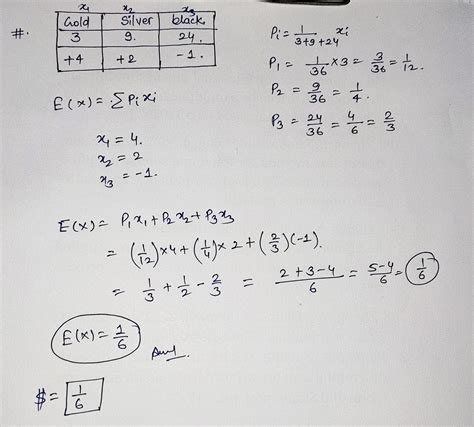 x₁ x₂ x₃
#. Gold Silver black.
3 9. 24.
+4 +2 -1.
Pi = 1/(3+9+24) xi
P₁ = 1/36 × 3 = 3/36 = 1/12.
P₂ = 9/36 = 1/4.
P₃ = 24/36 = 4/6 = 2/3
E(x) = ΣPi xi
x₁ = 4.
x₂ = 2
x₃ = -1.
E(x) = P₁x₁ + P₂x₂ + P₃x₃
= (1/12) × 4 + (1/4) × 2 + (2/3)(-1).
= 1/3 + 1/2 - 2/3 = (2+3-4)/6 = (5-4)/6 = 1/6
E(x) = 1/6 Ans.
$ = 1/6